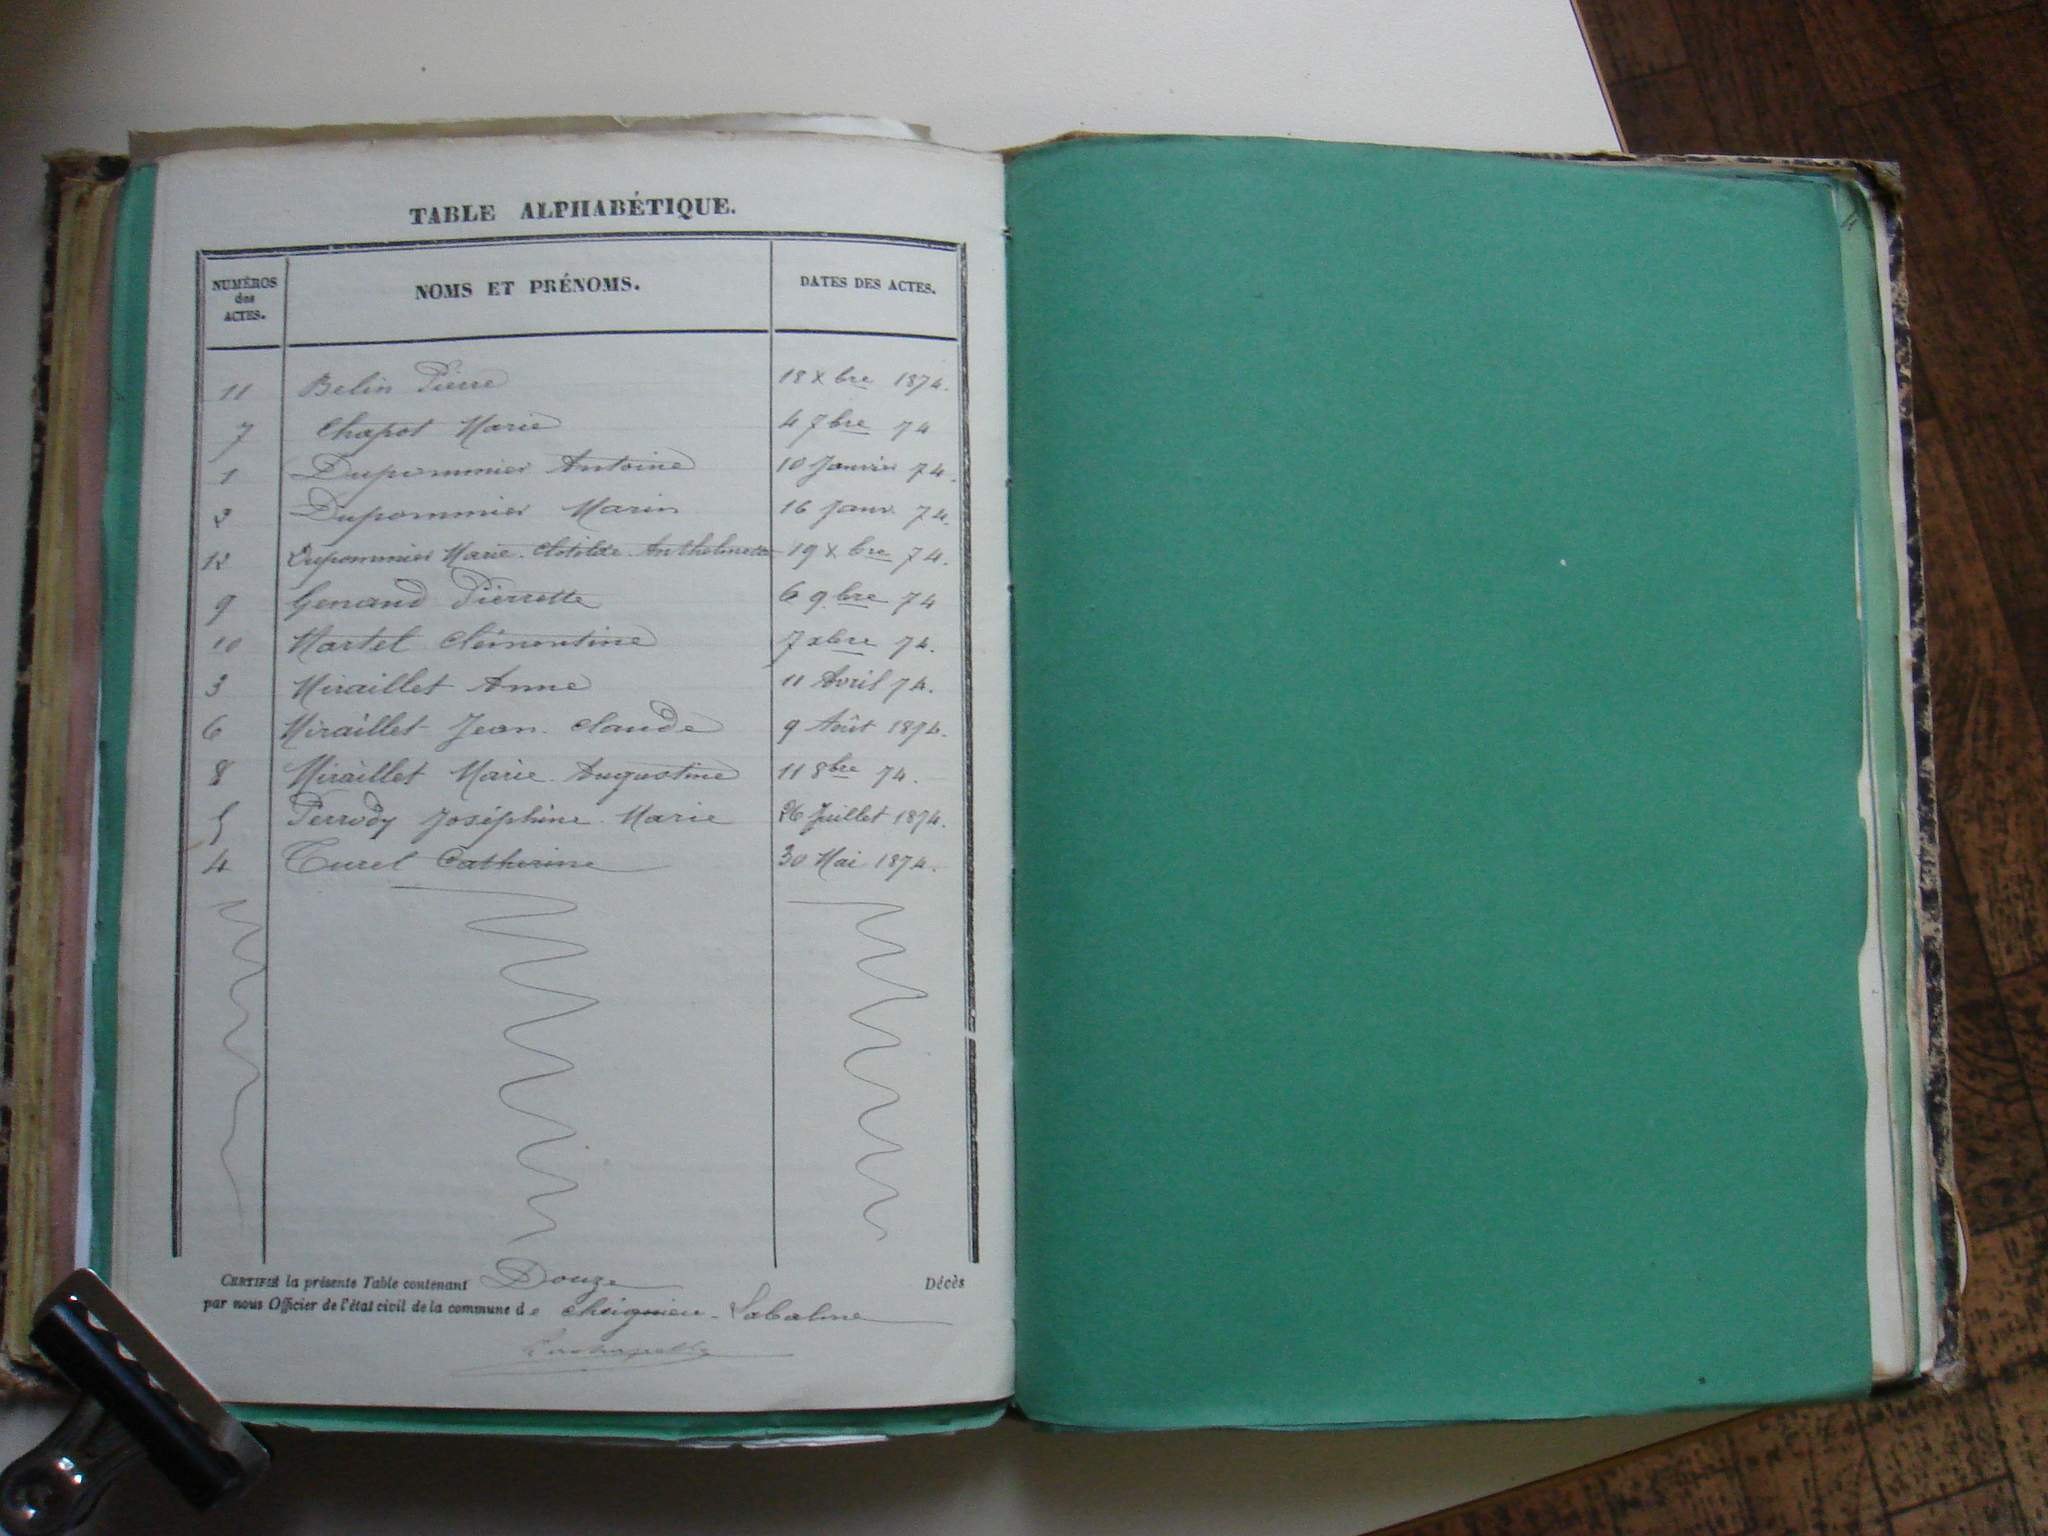 TABLE ALPHABÉTIQUE.
NUMÉROS des ACTES. NOMS ET PRÉNOMS. DATES DES ACTES.
11 Belin Pierre 18 Xbre 1874.
7 Chapot Marie 4 7bre 74
1 Dupommier Antoine 10 Janvier 74.
2 Dupommier Marin 16 Janv. 74.
12 Dupommier Marie Clotilde Anthelmette 19 Xbre 74.
9 Genand Pierrette 6 9bre 74
10 Martel Clémentine 7 xbre 74.
3 Miraillet Anne 11 Avril 74.
6 Miraillet Jean Claude 9 Août 1874.
8 Miraillet Marie Augustine 11 8bre 74.
5 Perrody Joséphine Marie 26 Juillet 1874.
4 Turel Catherine 30 Mai 1874.
CERTIFIÉ la présente Table contenant Douze Décès
par nous Officier de l'état civil de la commune de Cheignieu-Labalme